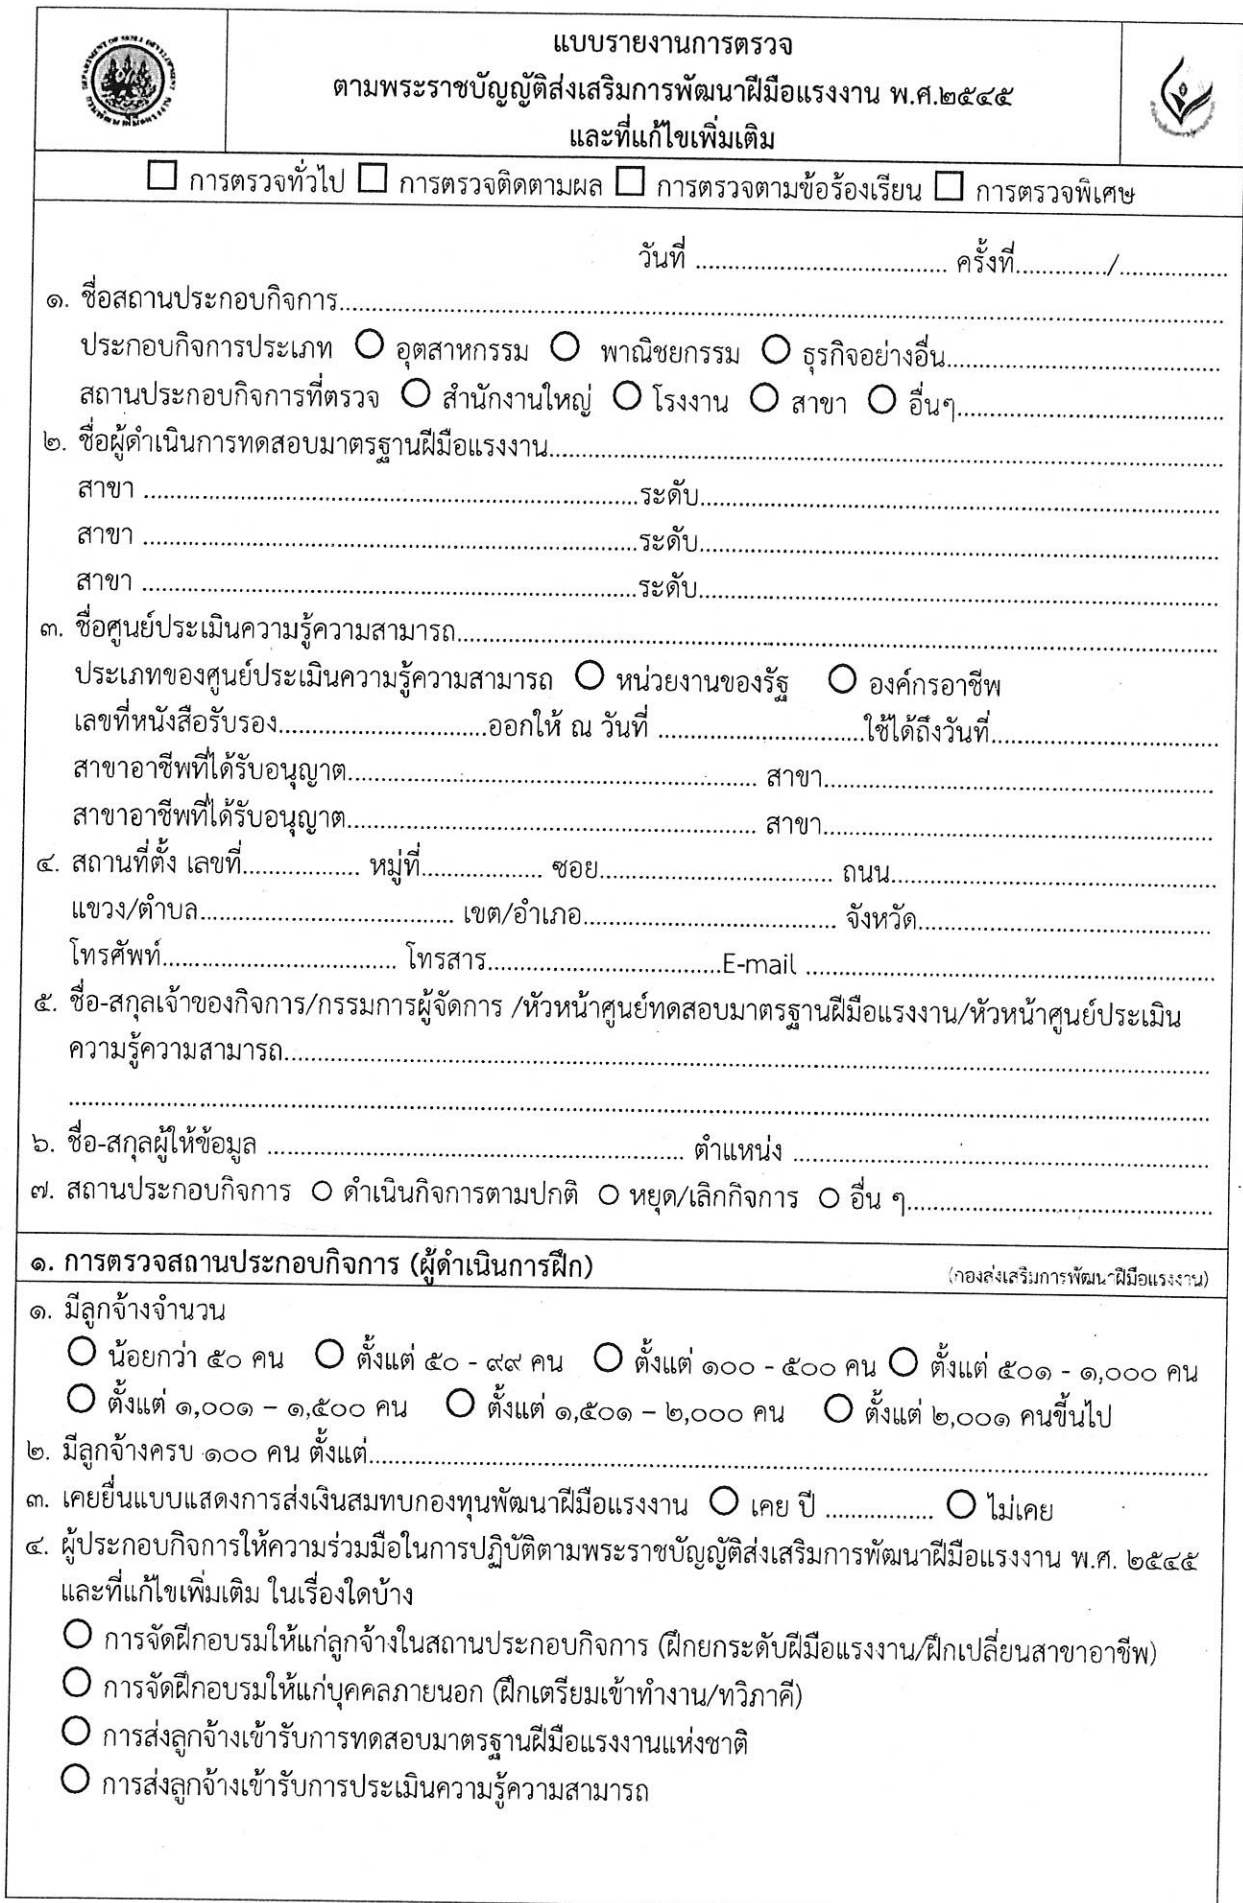 แบบรายงานการตรวจ
ตามพระราชบัญญัติส่งเสริมการพัฒนาฝีมือแรงงาน พ.ศ.๒๕๔๕
และที่แก้ไขเพิ่มเติม
☐ การตรวจทั่วไป ☐ การตรวจติดตามผล ☐ การตรวจตามข้อร้องเรียน ☐ การตรวจพิเศษ
วันที่ .................................... ครั้งที่............./................
๑. ชื่อสถานประกอบกิจการ................................................................................
ประกอบกิจการประเภท ○ อุตสาหกรรม ○ พาณิชยกรรม ○ ธุรกิจอย่างอื่น........................................
สถานประกอบกิจการที่ตรวจ ○ สำนักงานใหญ่ ○ โรงงาน ○ สาขา ○ อื่นๆ........................................
๒. ชื่อผู้ดำเนินการทดสอบมาตรฐานฝีมือแรงงาน................................................................................
สาขา ......................................................................ระดับ..........................................................................
สาขา ......................................................................ระดับ..........................................................................
สาขา ......................................................................ระดับ..........................................................................
๓. ชื่อศูนย์ประเมินความรู้ความสามารถ................................................................................
ประเภทของศูนย์ประเมินความรู้ความสามารถ ○ หน่วยงานของรัฐ ○ องค์กรอาชีพ
เลขที่หนังสือรับรอง..............................ออกให้ ณ วันที่ ..............................ใช้ได้ถึงวันที่.................................
สาขาอาชีพที่ได้รับอนุญาต.......................................................... สาขา........................................................
สาขาอาชีพที่ได้รับอนุญาต.......................................................... สาขา........................................................
๔. สถานที่ตั้ง เลขที่................. หมู่ที่................. ซอย................................. ถนน...............................................
แขวง/ตำบล.................................... เขต/อำเภอ.................................... จังหวัด..........................................
โทรศัพท์................................. โทรสาร.................................E-mail ..........................................................
๕. ชื่อ-สกุลเจ้าของกิจการ/กรรมการผู้จัดการ /หัวหน้าศูนย์ทดสอบมาตรฐานฝีมือแรงงาน/หัวหน้าศูนย์ประเมิน
ความรู้ความสามารถ................................................................................
................................................................................
๖. ชื่อ-สกุลผู้ให้ข้อมูล ............................................................ ตำแหน่ง ............................................................
๗. สถานประกอบกิจการ ○ ดำเนินกิจการตามปกติ ○ หยุด/เลิกกิจการ ○ อื่น ๆ............................................
๑. การตรวจสถานประกอบกิจการ (ผู้ดำเนินการฝึก) (กองส่งเสริมการพัฒนาฝีมือแรงงาน)
๑. มีลูกจ้างจำนวน
○ น้อยกว่า ๕๐ คน ○ ตั้งแต่ ๕๐ - ๙๙ คน ○ ตั้งแต่ ๑๐๐ - ๕๐๐ คน ○ ตั้งแต่ ๕๐๑ - ๑,๐๐๐ คน
○ ตั้งแต่ ๑,๐๐๑ – ๑,๕๐๐ คน ○ ตั้งแต่ ๑,๕๐๑ – ๒,๐๐๐ คน ○ ตั้งแต่ ๒,๐๐๑ คนขึ้นไป
๒. มีลูกจ้างครบ ๑๐๐ คน ตั้งแต่................................................................................
๓. เคยยื่นแบบแสดงการส่งเงินสมทบกองทุนพัฒนาฝีมือแรงงาน ○ เคย ปี ................ ○ ไม่เคย
๔. ผู้ประกอบกิจการให้ความร่วมมือในการปฏิบัติตามพระราชบัญญัติส่งเสริมการพัฒนาฝีมือแรงงาน พ.ศ. ๒๕๔๕
และที่แก้ไขเพิ่มเติม ในเรื่องใดบ้าง
○ การจัดฝึกอบรมให้แก่ลูกจ้างในสถานประกอบกิจการ (ฝึกยกระดับฝีมือแรงงาน/ฝึกเปลี่ยนสาขาอาชีพ)
○ การจัดฝึกอบรมให้แก่บุคคลภายนอก (ฝึกเตรียมเข้าทำงาน/ทวิภาคี)
○ การส่งลูกจ้างเข้ารับการทดสอบมาตรฐานฝีมือแรงงานแห่งชาติ
○ การส่งลูกจ้างเข้ารับการประเมินความรู้ความสามารถ